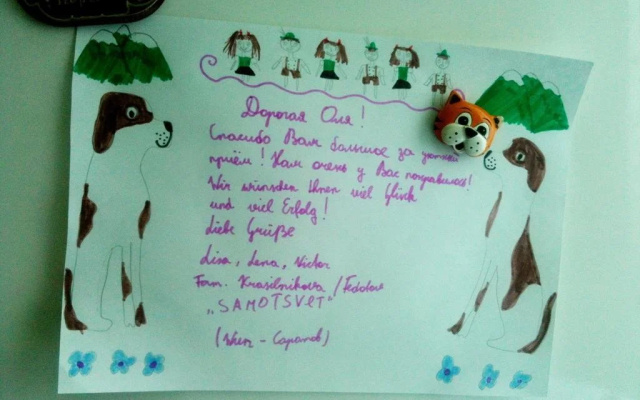 Дорогая Оля!
Спасибо Вам большое за уютный
приём! Нам очень у Вас понравилось!
Wir wünschen Ihnen viel Glück
und viel Erfolg!
Liebe Grüße
Lisa, Lena, Victor
Fam. Krasilnikova / Fedotov
„SAMOTSVET“
(Wien - Саратов)